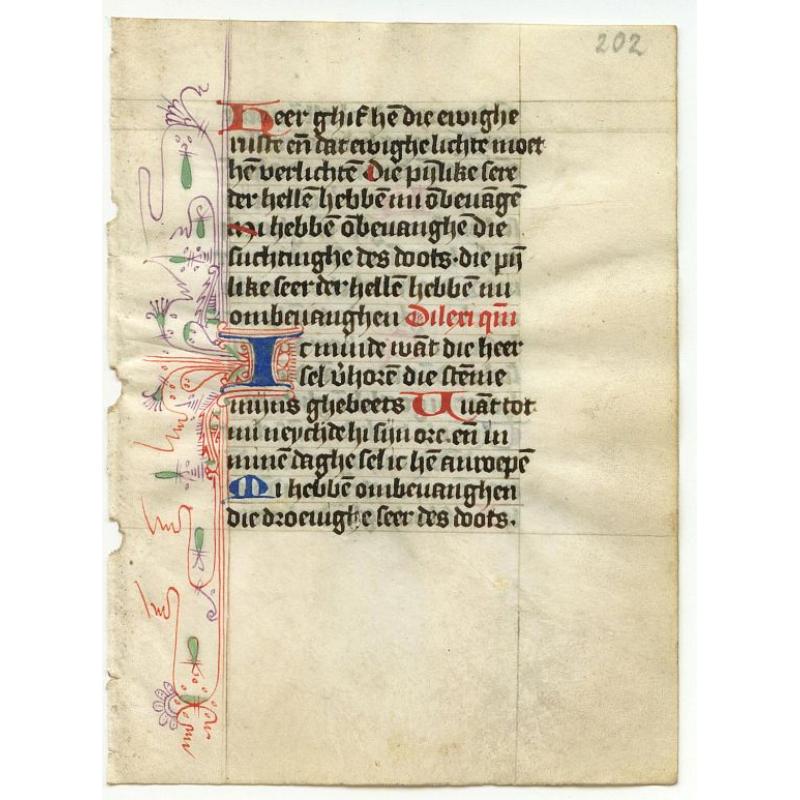 202
Heer ghif hē die ewighe
ruste eñ dat ewighe lichte moet
hē verlichtē Die pijnlike sere
der hellē hebbē mi ōbeuāgē
Mi hebbē ōbeuanghē die
suchtinghe des doots. die pijn
like seer der hellē hebbē mi
ombeuanghen Dilexi qm̄
Ic minde wāt die heer
sel v̄horē die stēme
mijns ghebeets Want tot
mi neychde hi sijn ore. eñ in
minē daghe sel ic hē anroepē
Mi hebbē ombeuanghen
die droeuighe seer des doots.